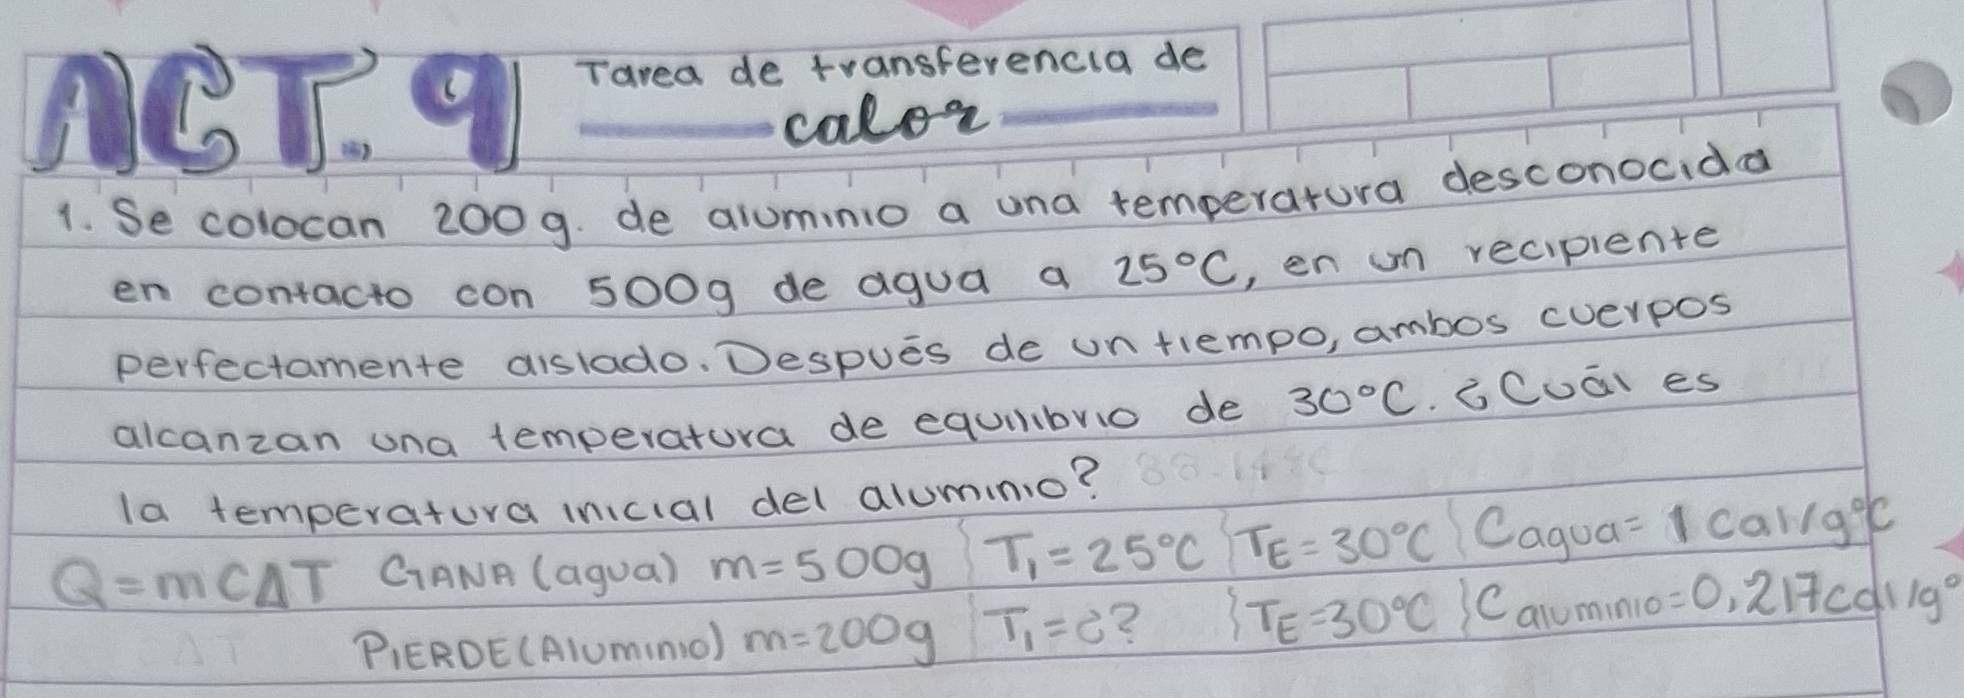 ACT. 9 Tarea de transferencia de
calor
1. Se colocan 200g. de aluminio a una temperatura desconocida
en contacto con 500g de agua a 25°C, en un recipiente
perfectamente aislado. Después de un tiempo, ambos cuerpos
alcanzan una temperatura de equilibrio de 30°C. ¿Cuál es
la temperatura inicial del aluminio?
Q=mCΔT GANA (agua) m=500g T₁=25°C TE=30°C Cagua=1cal/g°C
PIERDE (Aluminio) m=200g T₁=¿? TE=30°C Caluminio=0,217cal/g°